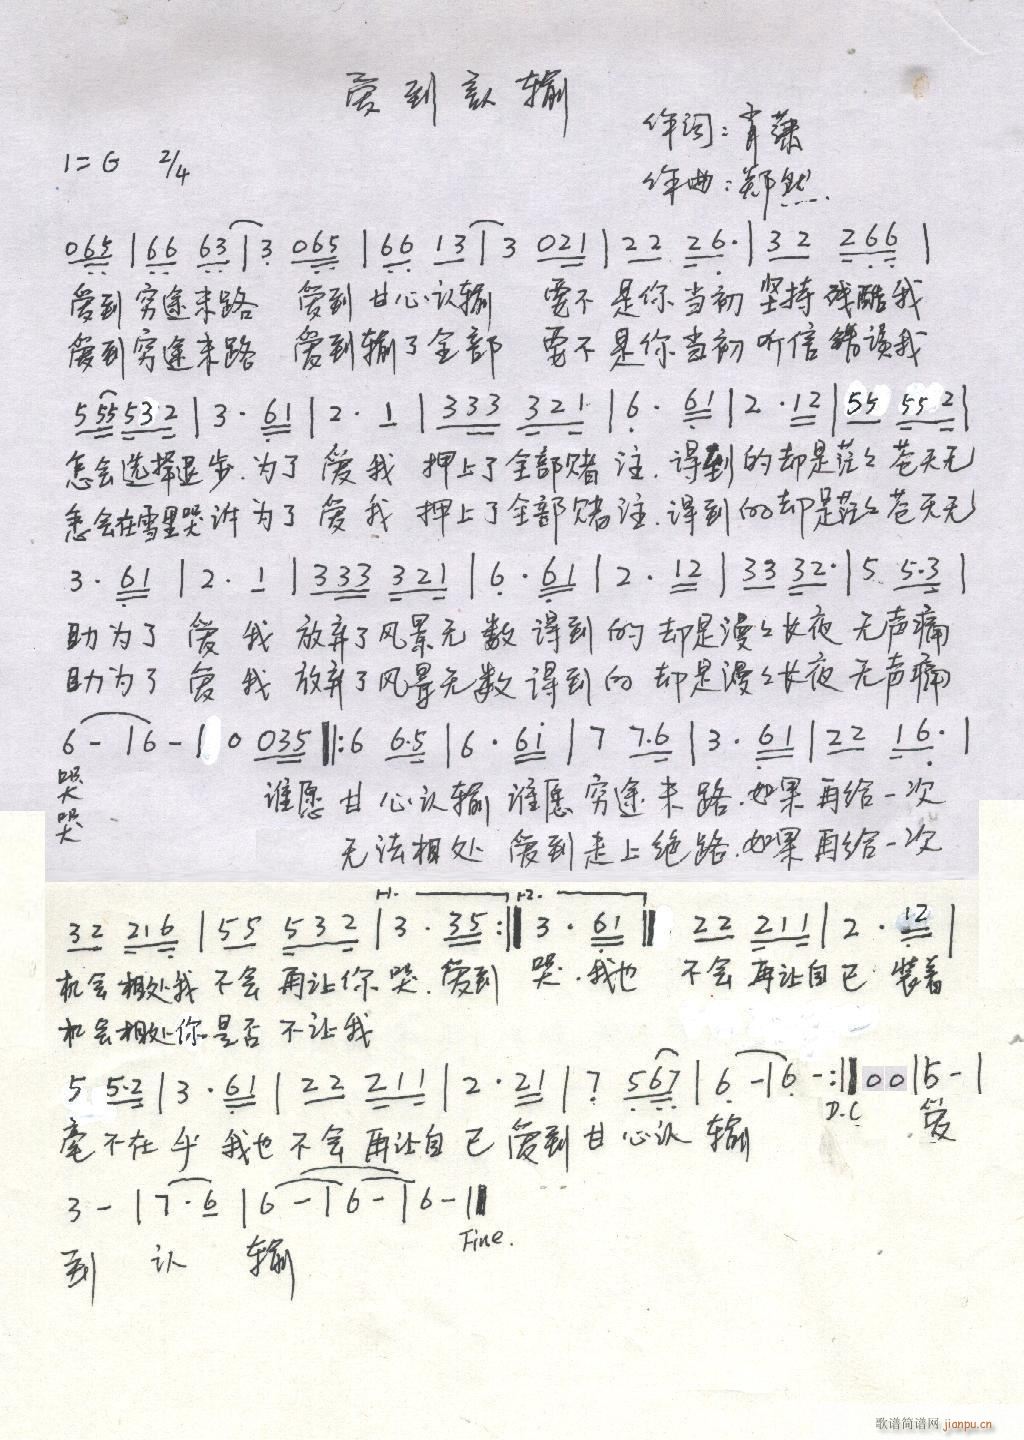 爱到认输
作词：肖
1=G 2/4
作曲：郑然
065 | 66 63 | 3 065 | 66 13 | 3 021 | 22 26· | 32 266 |
爱到穷途末路 爱到甘心认输 要不是你当初坚持残酷我
爱到穷途末路 爱到输了全部 要不是你当初听信错误我
5 55 532 | 3·61 | 2·1 | 333 321 | 6·61 | 2·12 | 55 552 |
怎会选择退步.为了爱我押上了全部赌注.得到的却是茫々苍天无
怎会在雪里哭诉为了爱我押上了全部赌注.得到的却是茫々苍天无
3·61 | 2·1 | 333 321 | 6·61 | 2·12 | 33 32· | 5 5·3 |
助为了爱我放弃了风景无数得到的却是漫々长夜无声痛
助为了爱我放弃了风景无数得到的却是漫々长夜无声痛
6 - | 6 - | 0 035 ‖: 6 6·5 | 6·6i | 7 7·6 | 3·61 | 22 16· |
哭 谁愿甘心认输谁愿穷途末路.如果再给一次
哭 无法相处爱到走上绝路.如果再给一次
1. 2.
32 216 | 55 532 | 3·35 :‖ 3·61 ‖ 22 211 | 2·12 |
机会相处我不会再让你哭.爱到哭.我也不会再让自己装着
机会相处你是否不让我
5 5·2 | 3·61 | 22 211 | 2·21 | 7 567 | 6 - | 6 - :‖ 00 | 5 - |
毫不在乎我也不会再让自己爱到甘心认输 D.C 爱
3 - | 7·6 | 6 - | 6 - | 6 - ‖
到认输 Fine.
歌谱简谱网 jianpu.cn